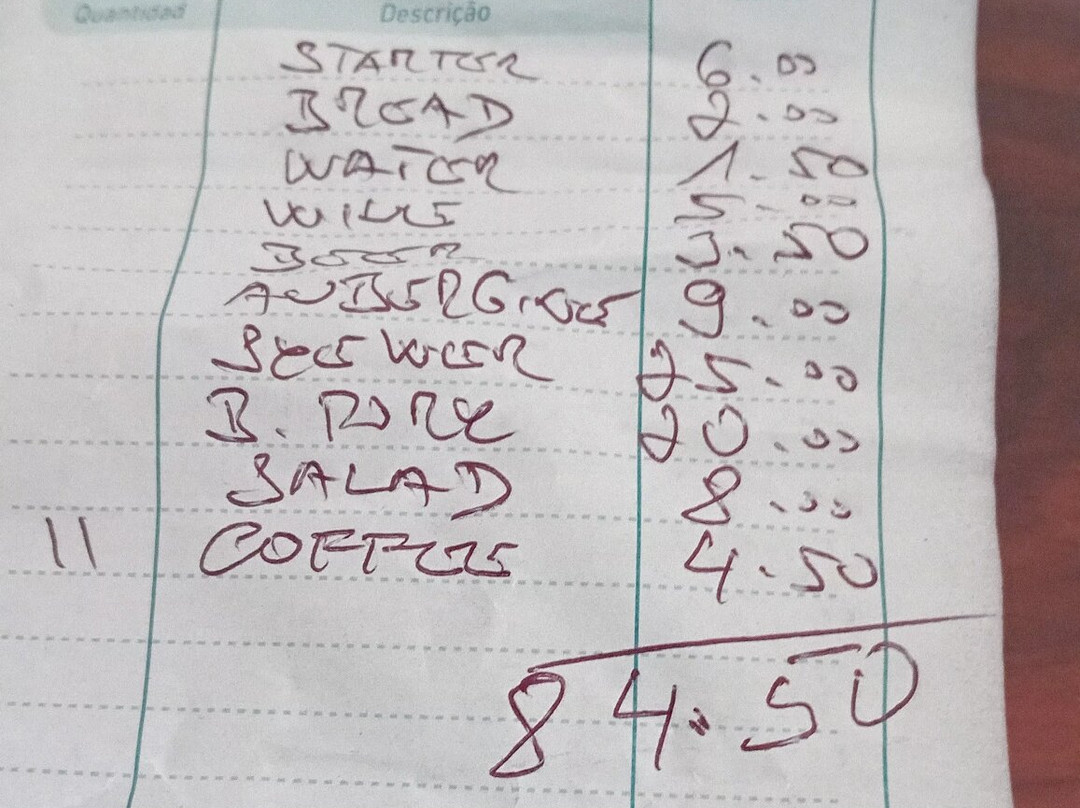 Quantidad Descrição
STARTER 6.00
BREAD 2.00
WATER 1.50
WINE 5.00
BEER 3.50
AUBERGINE 9.00
SKEWER 25.00
B. PORK 20.00
SALAD 8.00
11 COFFEE 4.50
84.50